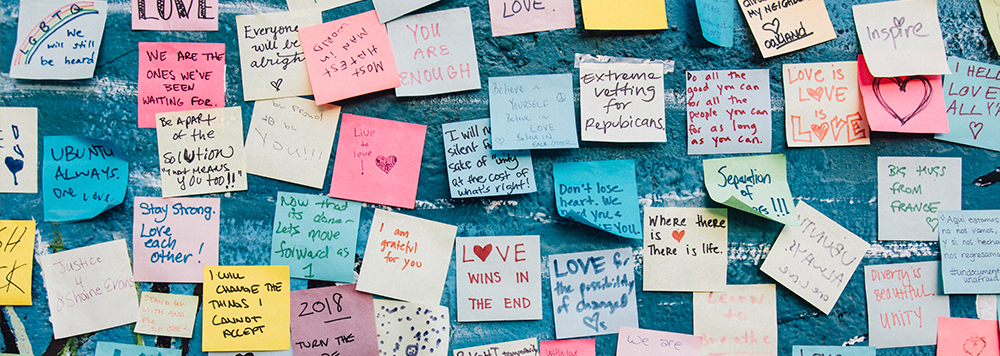 LGBTQ
We
will still
be heard
LOVE
WE ARE THE
ONES WE'VE
BEEN
WAITING FOR.
Everyone
will be
alright
MOST
HATEST
MAN IN
WORLD
YOU
ARE
ENOUGH
LOVE.
MY NEIGHBOR
Oakland
Inspire
BE A PART
OF THE
SOLUTION
"THAT MEANS
YOU TOO!!"
be proud
to be
YOU!!!
Live
to
love!
I WILL NOT
silent for
sake of
at the cost
of what's
right!
Believe in
YOURSELF
Believe in
LOVE
Believe in
EACH OTHER
Extreme
vetting
for
Republicans.
Do all the
good you can
for all the
people you can
for as long
as you can.
LOVE IS
LOVE
IS
LOVE
I HELLA
LOVE
ALLYA
UBUNTU
ALWAYS.
One LOVE
Stay Strong.
Love
each
other!
Now that
its done~
Lets move
forward as
1
I am
grateful
for you
Don't lose
heart. We
need you &
love you!
Separation
of
Where there
is
There is life.
UBUNTU
ALWAYS
BIG HUGS
FROM
FRANCE
Aquí estamos
no nos vamos,
y si nos hechan
nos regresamos
#undocumented
unafraid
Justice
4
STAND UP
AND FOR
EACH OTHER.
I WILL
CHANGE THE
THINGS I
CANNOT
ACCEPT
2018
TURN THE
LOVE
WINS IN
THE END
LOVE for
the possibility
of changed
LEARN TO
breathe
Diversity is
beautiful
in
unity
We are
with love